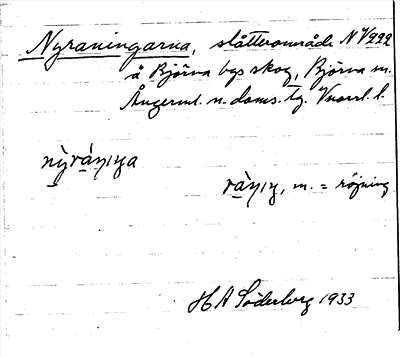 Nyraningarna, slåtterområde N V 222
å Björna bys skog, Björna sn.
Ångerml. n. doms. tg. Vnorrl. l.
nỳràniŋa
ràniŋ, m. = röjning
H A Söderborg 1933